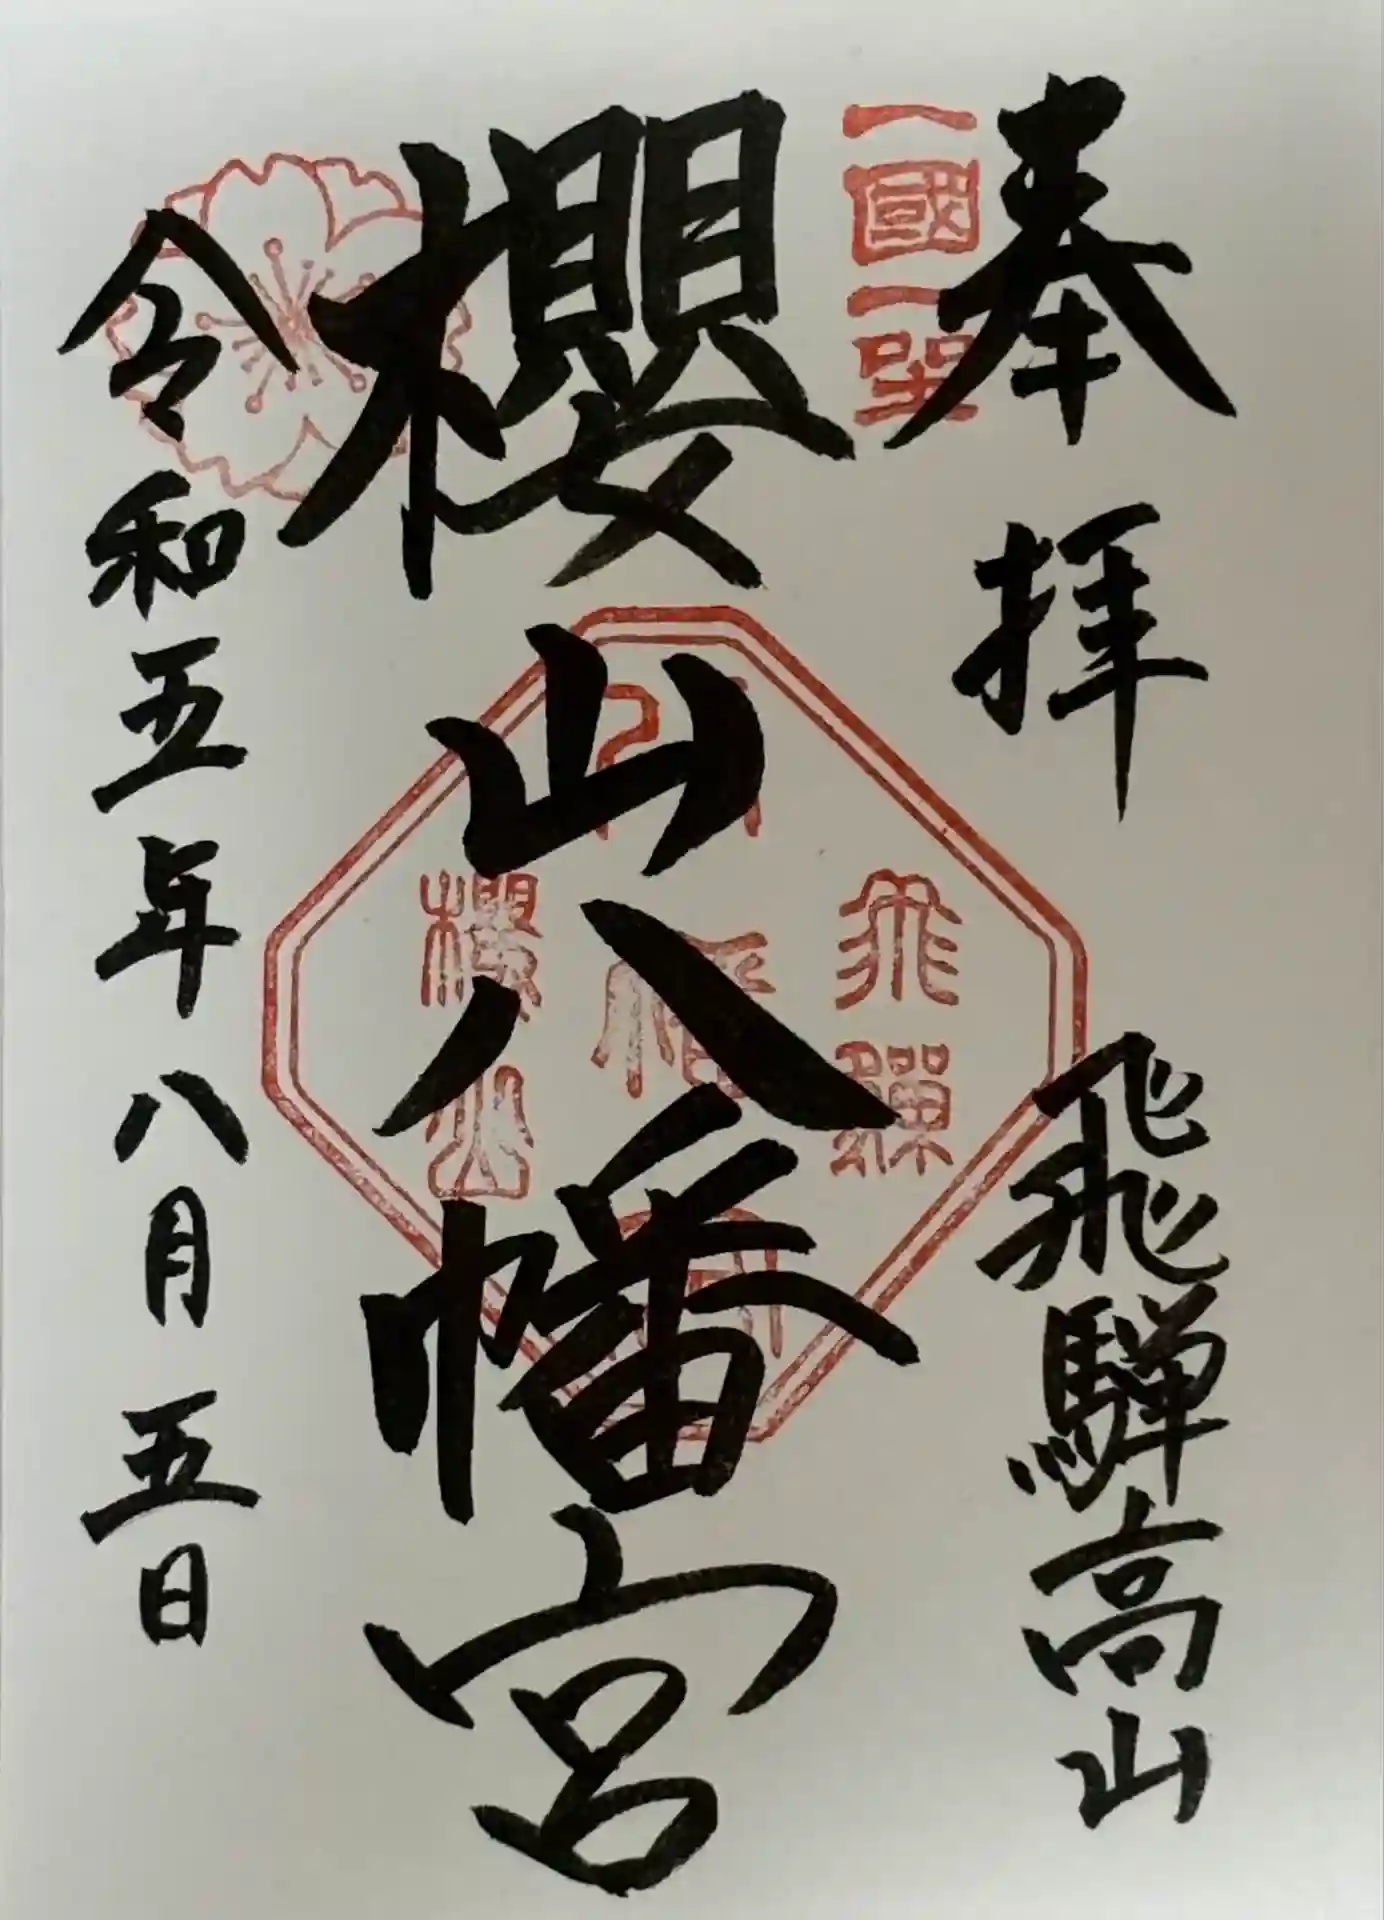 奉拝
飛騨高山
一國一社
櫻山八幡宮
飛騨
八幡宮
櫻山
令和五年八月五日